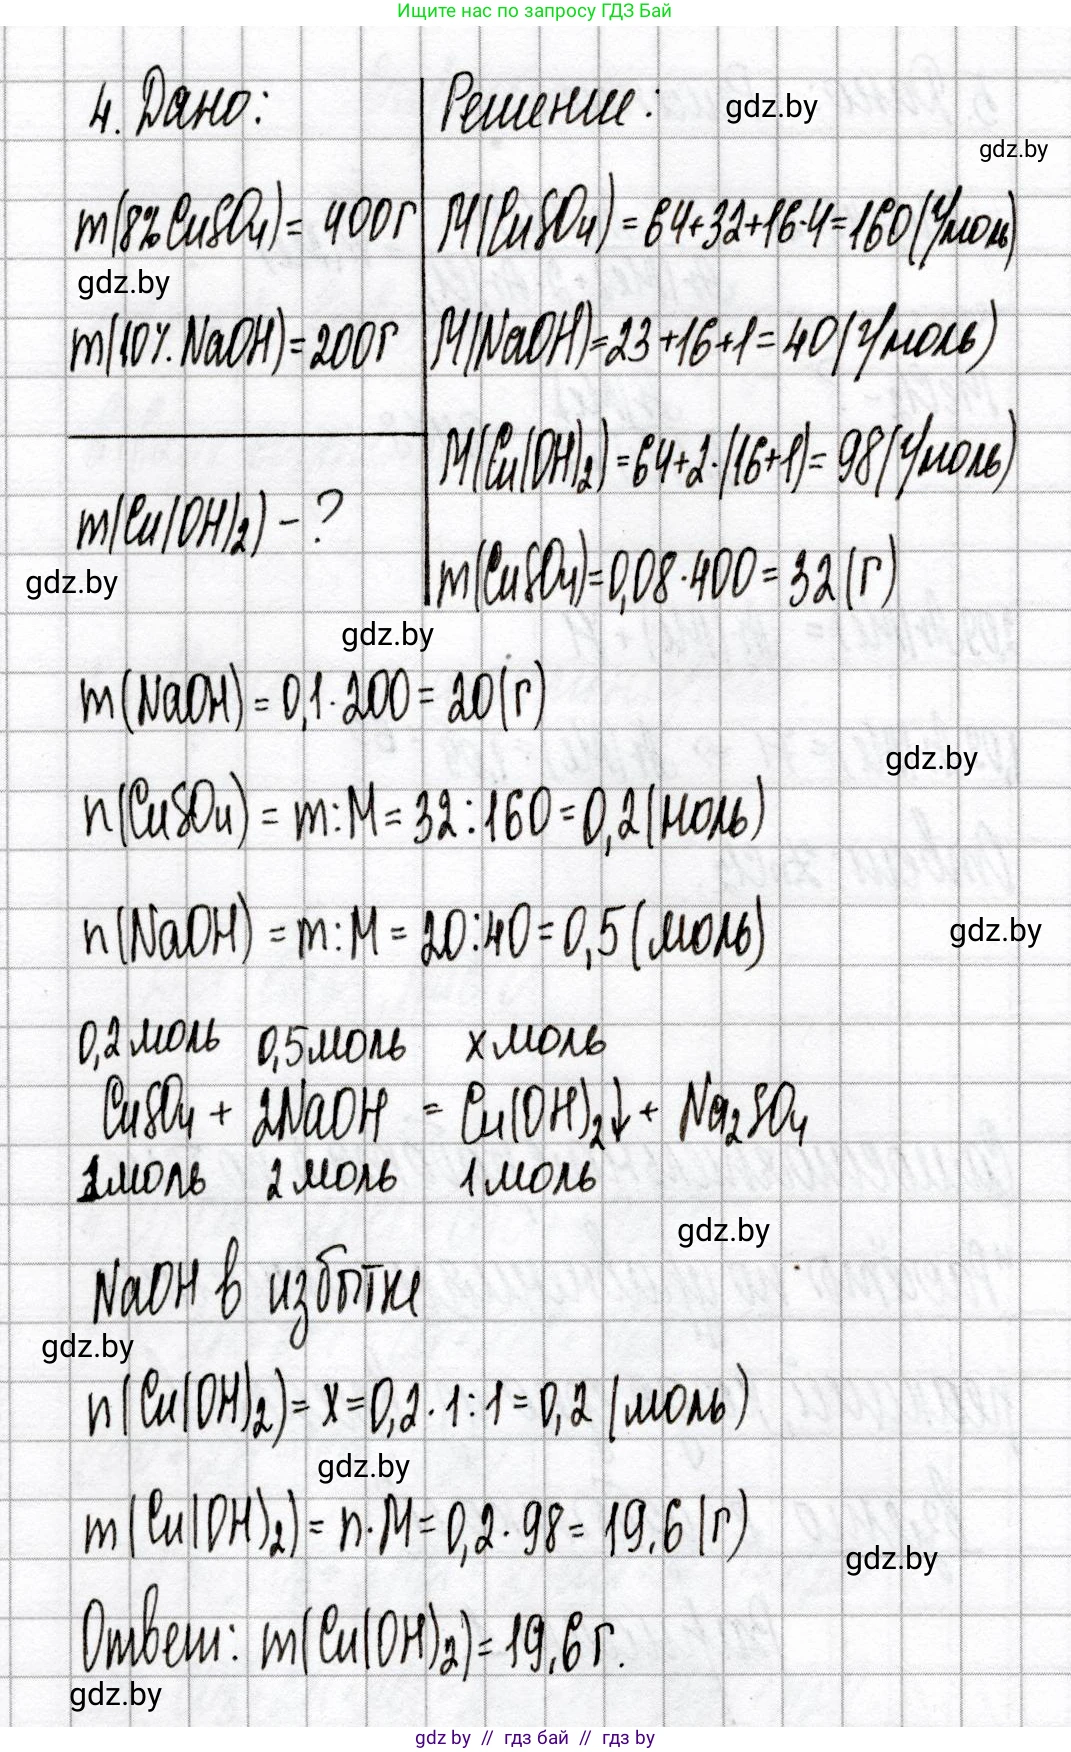 Ищите нас по запросу ГДЗ Бай
4. Дано:
Решение:
gdz.by
gdz.by
m(8% CuSO₄) = 400г
M(CuSO₄) = 64+32+16·4=160(г/моль)
gdz.by
m(10% NaOH)=200г
M(NaOH)=23+16+1=40(г/моль)
M(Cu(OH)₂)=64+2·(16+1)=98(г/моль)
m(Cu(OH)₂) - ?
gdz.by
m(CuSO₄)=0,08·400=32(г)
gdz.by
m(NaOH) = 0,1·200=20(г)
gdz.by
n(CuSO₄) = m:M=32:160=0,2(моль)
n(NaOH) = m:M=20:40=0,5(моль)
gdz.by
0,2моль 0,5моль x моль
CuSO₄ + 2NaOH = Cu(OH)₂↓ + Na₂SO₄
1моль 2 моль 1 моль
gdz.by
NaOH в избытке
gdz.by
n(Cu(OH)₂)= x=0,2·1:1=0,2 (моль)
gdz.by
m(Cu(OH)₂)= n·M=0,2·98= 19,6(г)
gdz.by
Ответ: m(Cu(OH)₂)=19,6г.
gdz.by
gdz by // гдз бай // гдз by